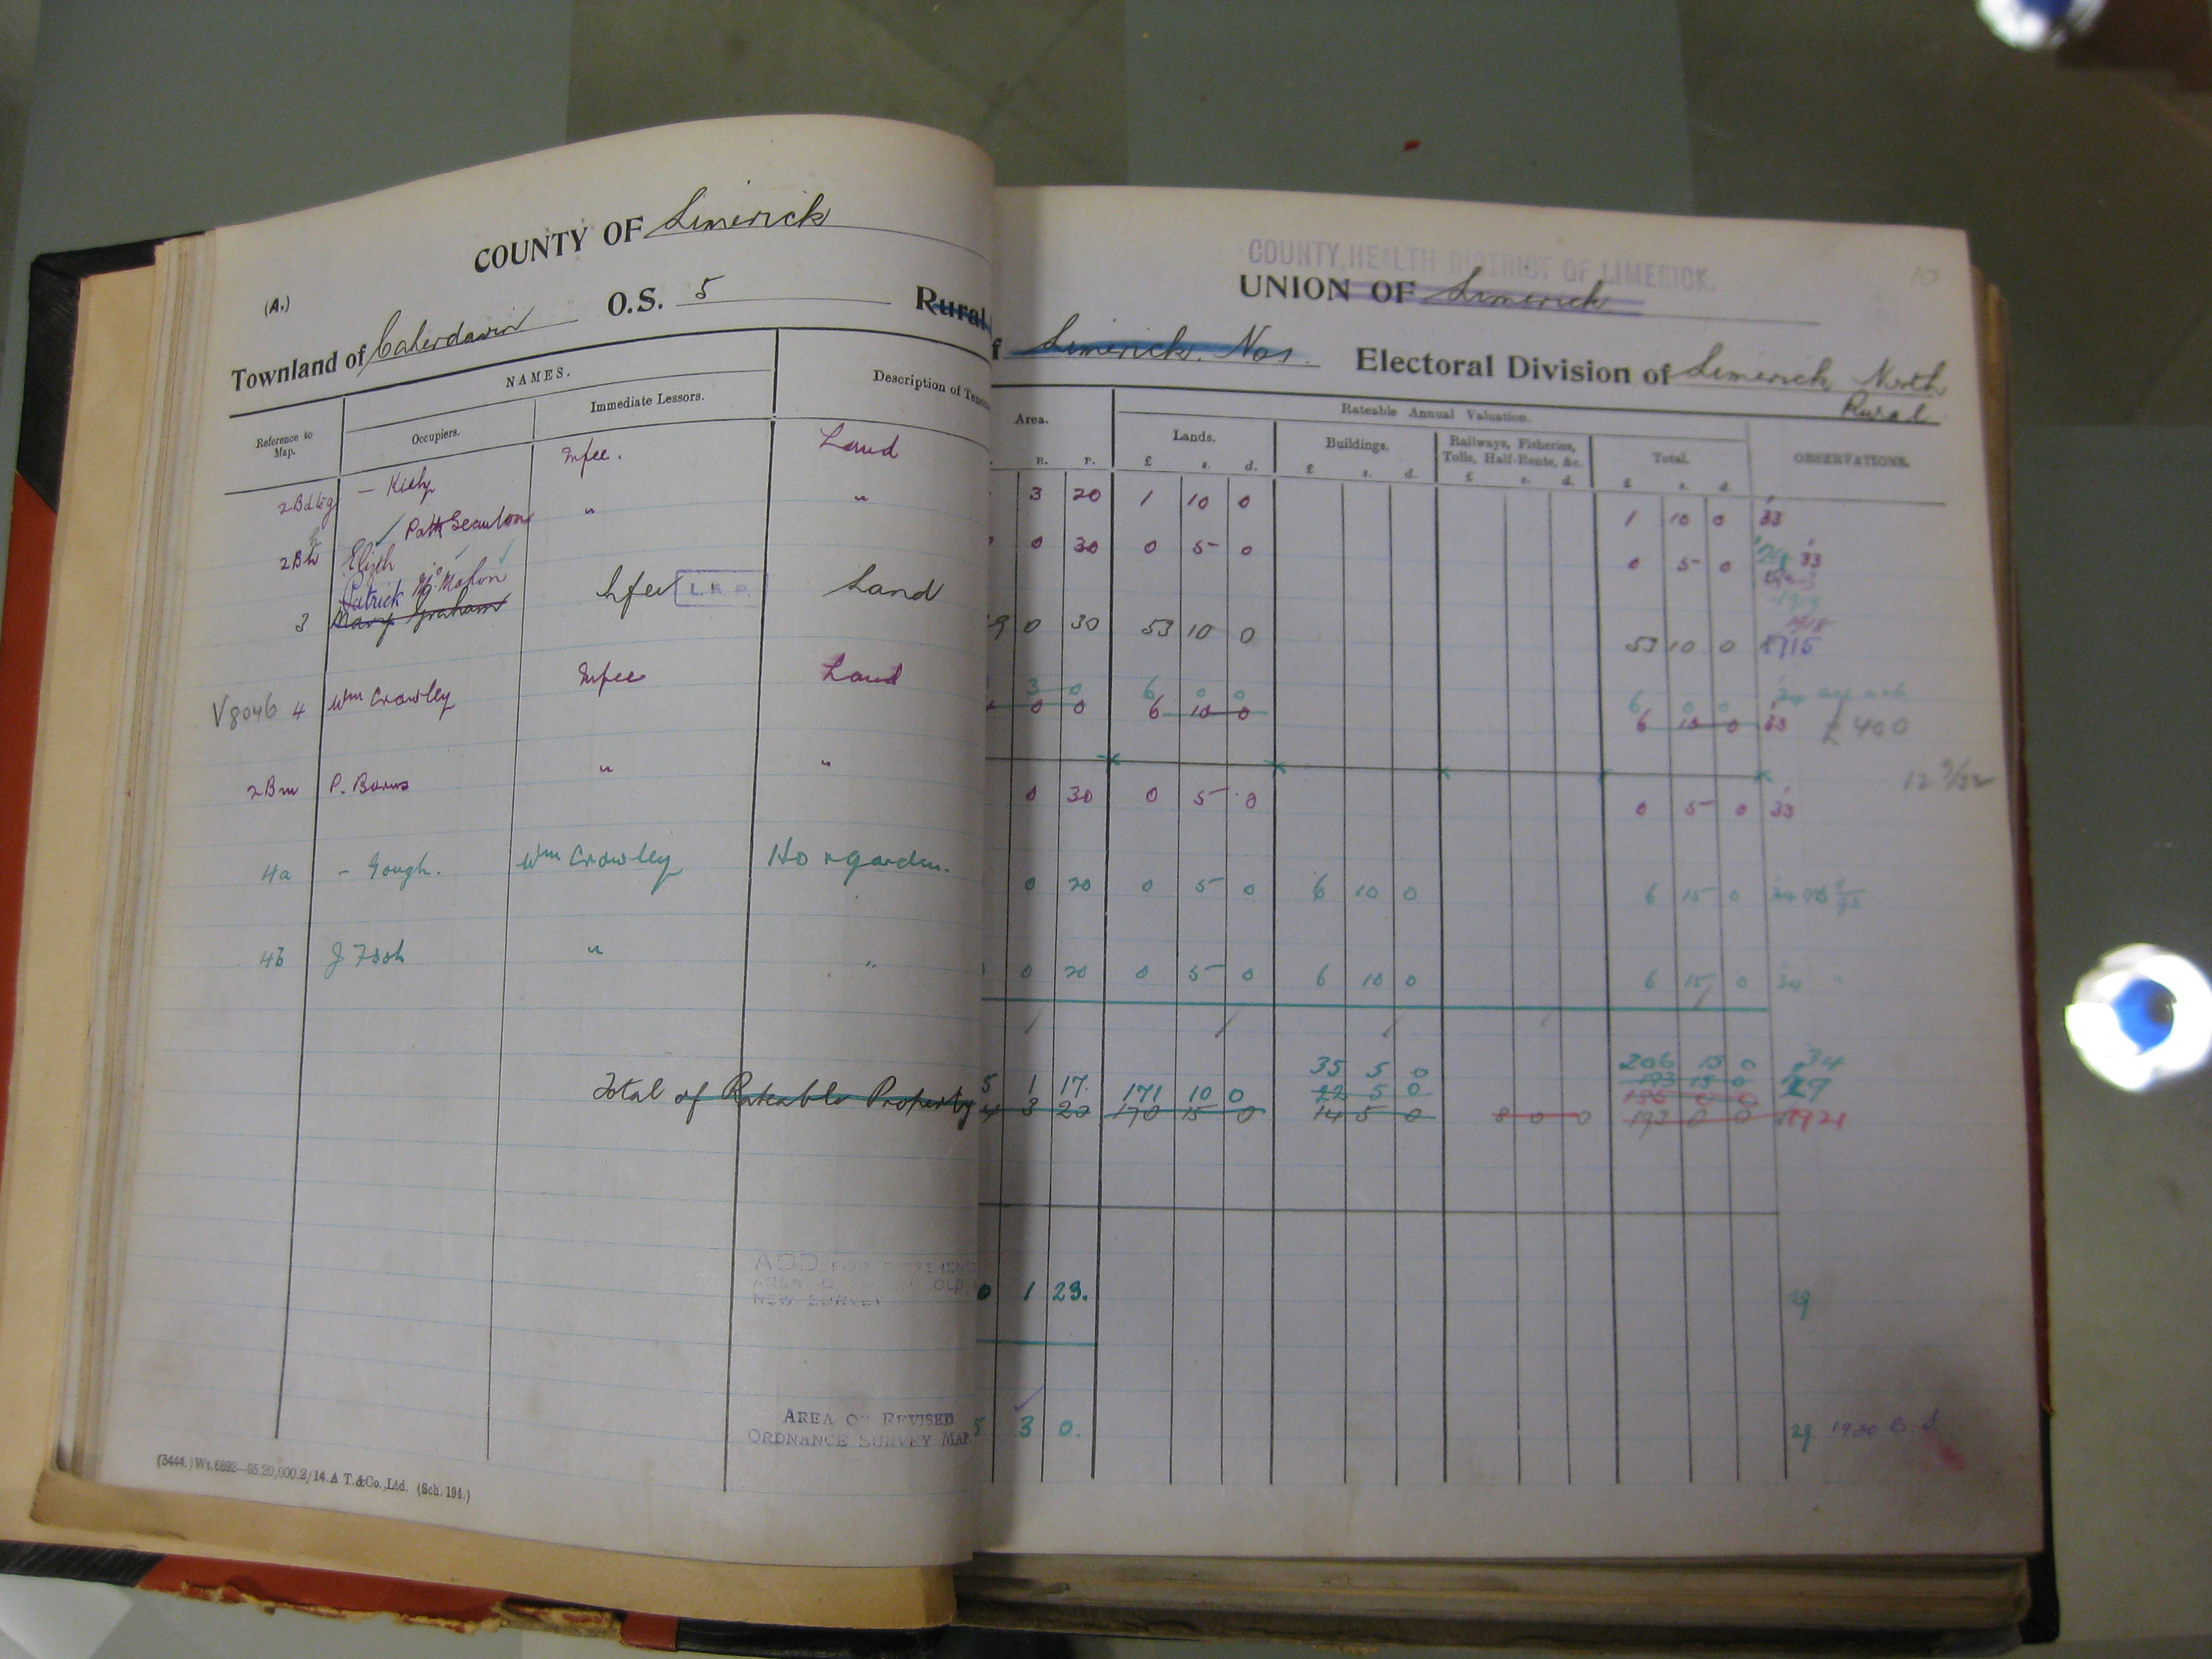 COUNTY OF Limerick
COUNTY HEALTH DISTRICT OF LIMERICK.
UNION OF Limerick
10
(A.)
Townland of Caherdavin O.S. 5 Rural
Limerick. No 1. Electoral Division of Limerick North
Rural
Reference to Map. NAMES. Description of Tene
Occupiers. Immediate Lessors.
Area. Rateable Annual Valuation. OBSERVATIONS.
Lands. Buildings. Railways, Fisheries, Tolls, Half-Rents, &c. Total.
R. P. £ s. d. £ s. d. £ s. d. £ s. d.
— Kiely Infee. Land 3 20 1 10 0 1 10 0 33
2Bh Elizth Patk Scanlon " " 0 30 0 5 0 0 5 0 33
Patrick McMahon
3 Mary Graham Infee L.A.P. Land 9 0 30 53 10 0 53 10 0 1915
1919
1918
3 0 6 0 0 6 0 0 34
V8046 4 Wm Crowley Infee Land 0 0 6 10 0 6 10 0 33 £400
12 9/32
2Bm P. Burns " " 0 30 0 5 0 0 5 0 33
4a - Gough. Wm Crowley Ho & garden. 0 20 0 5 0 6 10 0 6 15 0 34
4b " " 0 20 0 5 0 6 10 0 6 15 0 34 "
35 5 0 206 15 0 34
5 1 17. 171 10 0 22 5 0 193 15 0 29
Total of Rateable Property 4 3 20 170 15 0 14 5 0 8 0 0 193 0 0 1921
185 0 0
ADD FOR DIFFERENCE
AREA OLD
NEW SURVEY 0 1 23. 29
AREA ON REVISED
ORDNANCE SURVEY MAP 5 3 0. 29 1930
(3444.) Wt. 6892—95. 20,000. 2/14. A T. & Co., Ltd. (Sch. 194.)